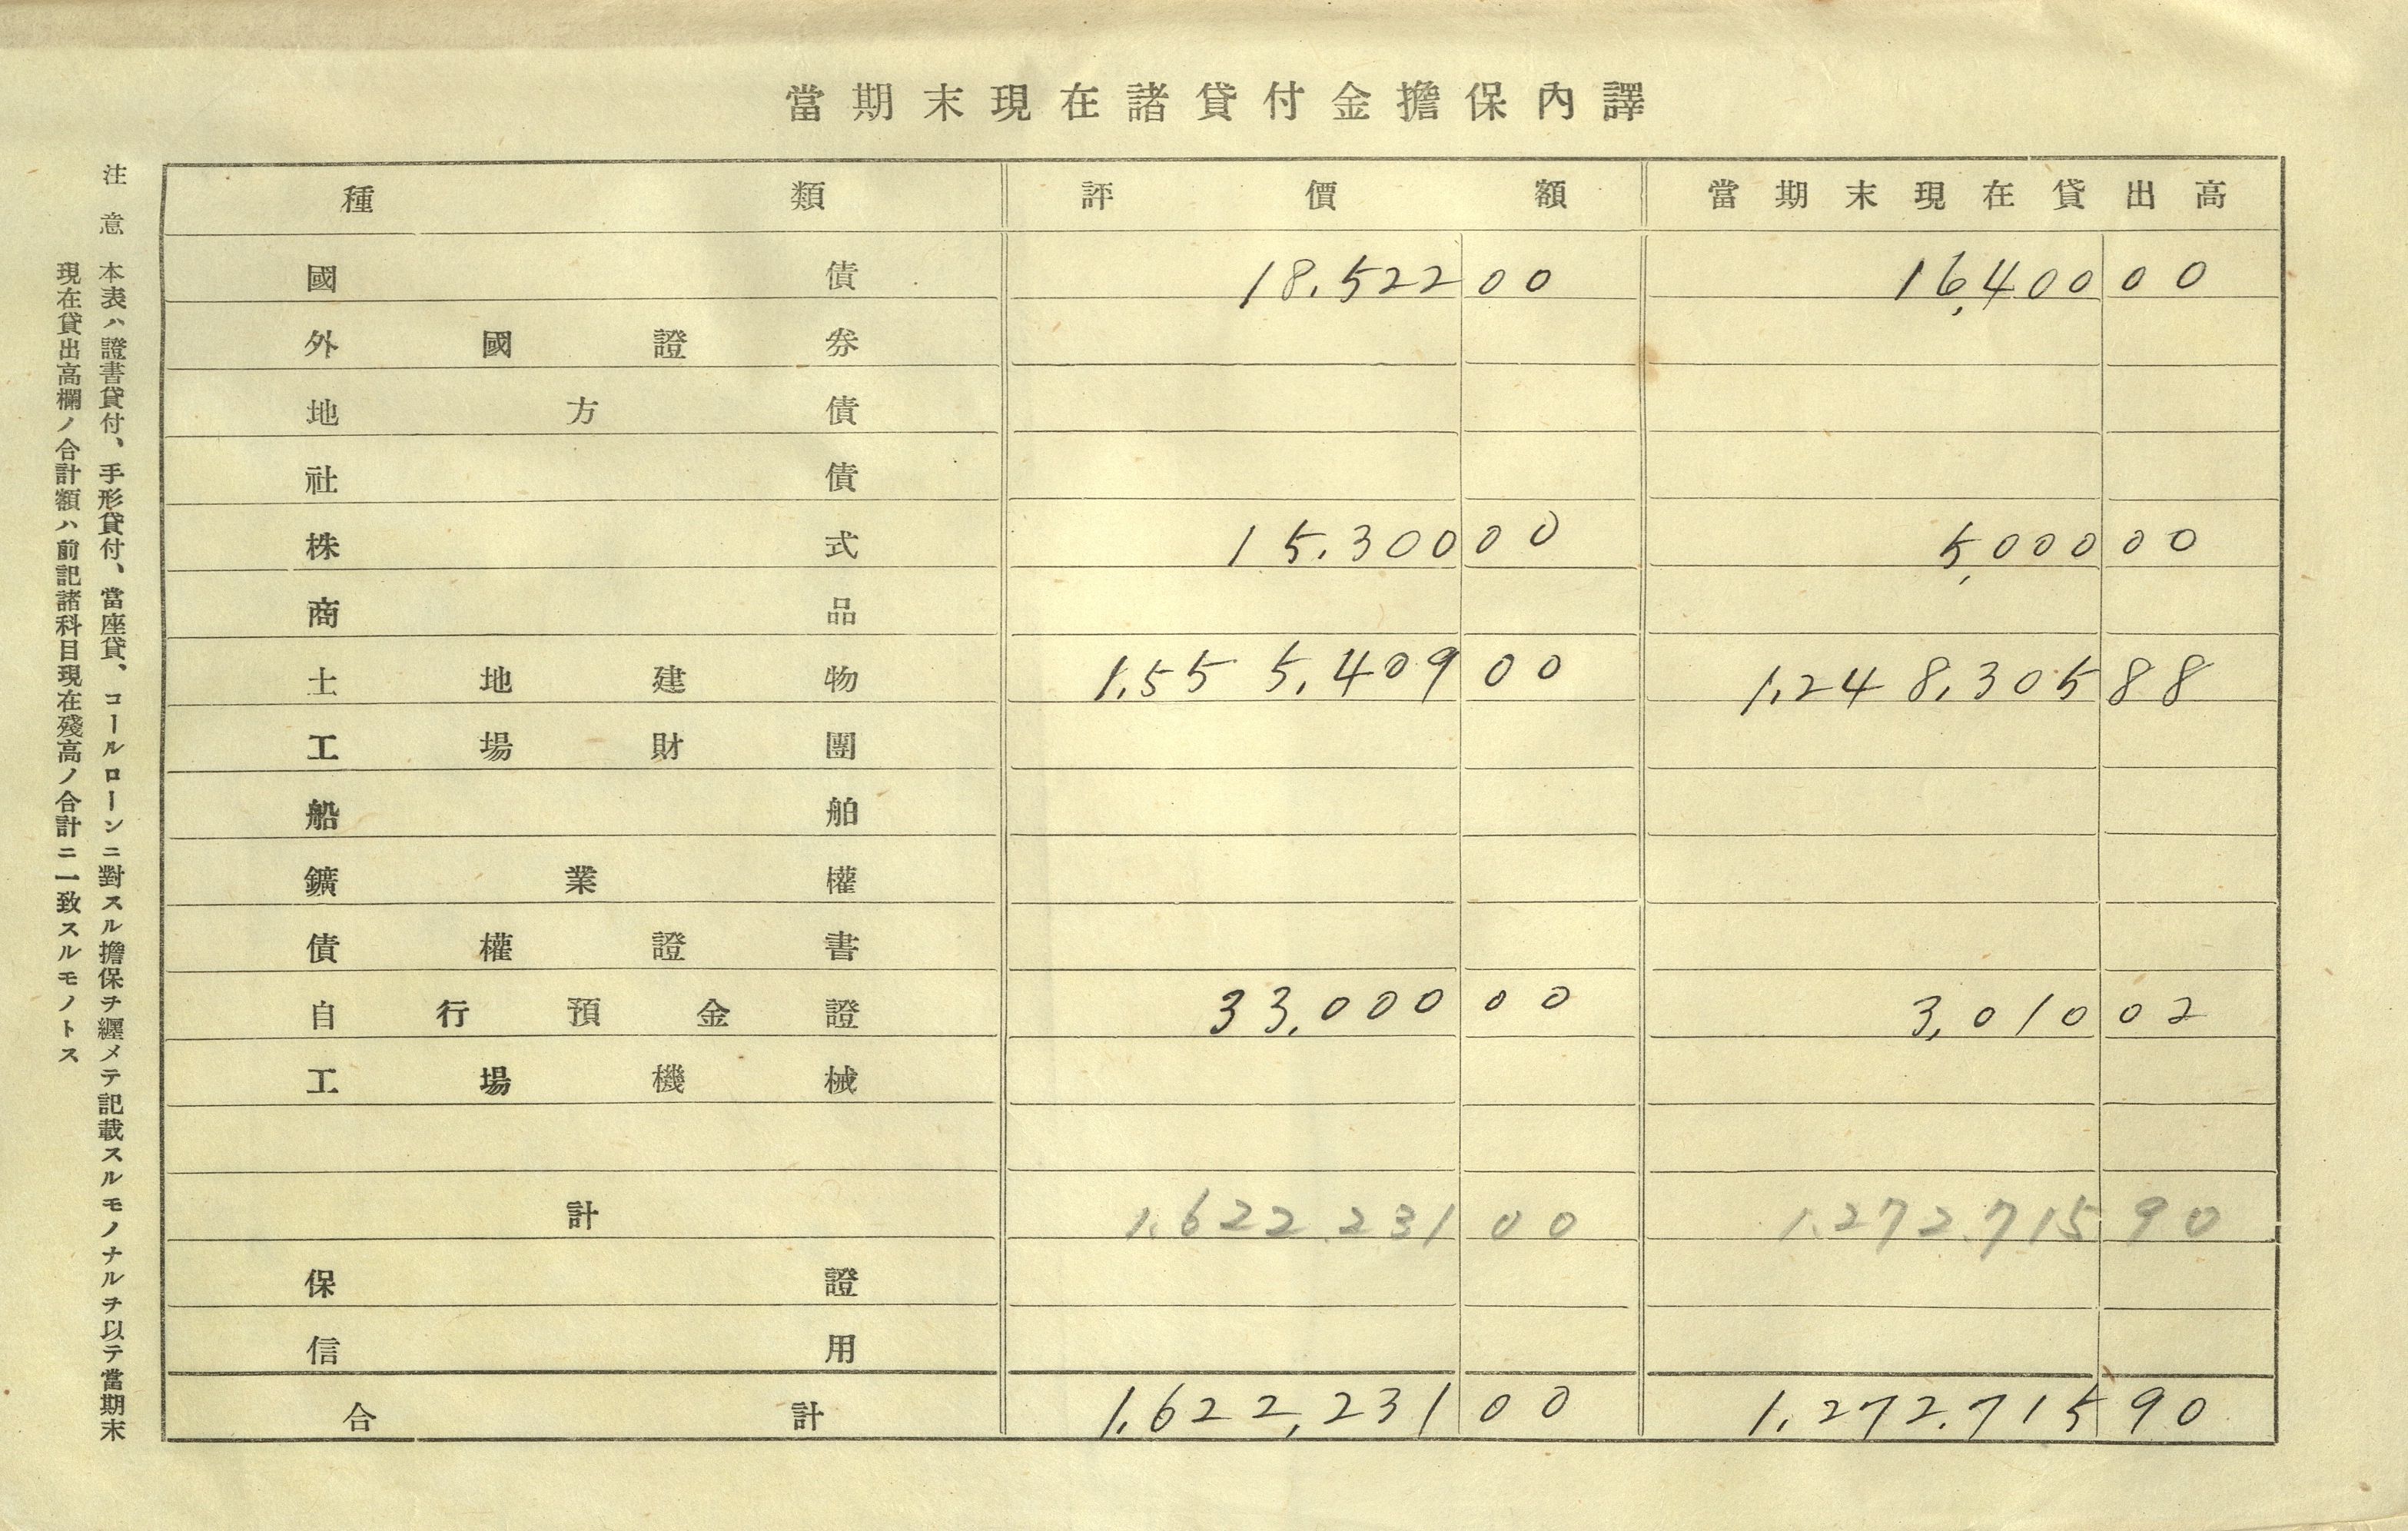 當期末現在諸貸付金擔保內譯
種類 評價額 當期末現在貸出高
國債 18.522 00 16,400 00
外國證券
地方債
社債
株式 15.300 00 5,000 00
商品
土地建物 1,555,409 00 1,248,305 88
工場財團
船舶
鑛業權
債權證書
自行預金證 33,000 00 3,010 02
工場機械
計 1.622.231 00 1.272.715 90
保證
信用
合計 1,622,231 00 1,272.715 90
注意
本表ハ證書貸付、手形貸付、當座貸、コールローンニ對スル擔保ヲ纒メテ記載スルモノナルヲ以テ當期末
現在貸出高欄ノ合計額ハ前記諸科目現在殘高ノ合計ニ一致スルモノトス